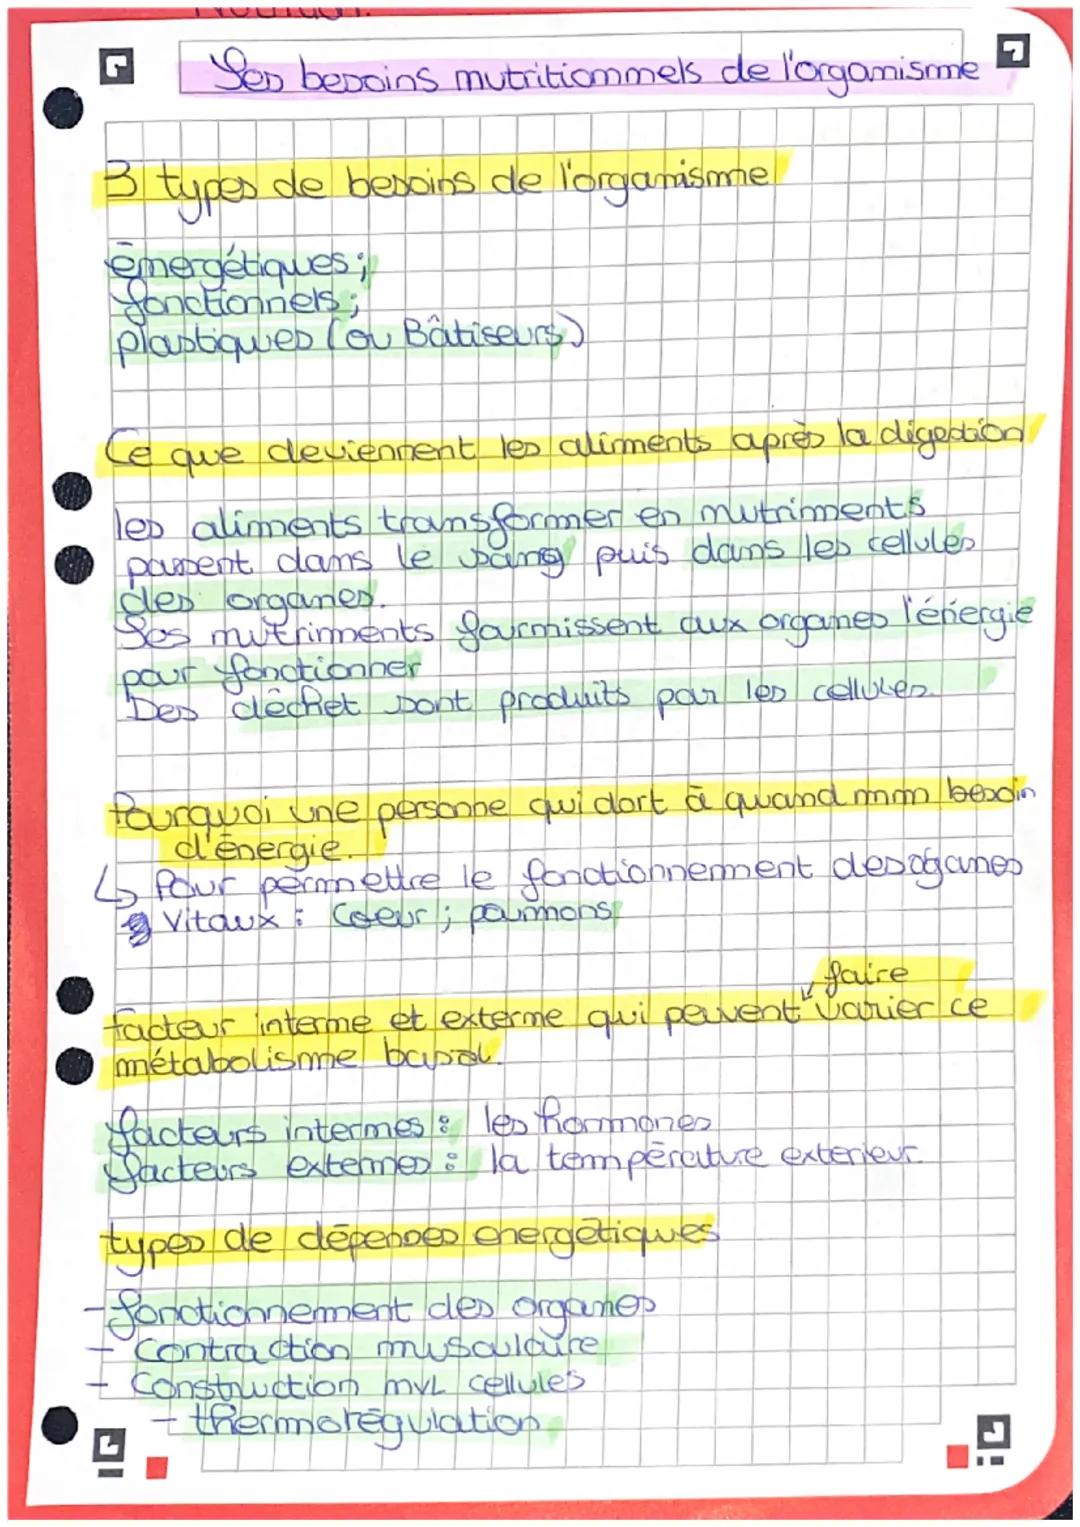 Les besoins nutritionnels de l'organisme
3 types de besoins de l'organisme
énergétiques;
fonctionnels;
plastiques (ou Bâtiseurs)
Ce que deviennent les aliments après la digestion
les aliments transformer en nutriments
passent dans le sang puis dans les cellules
des organes.
Ses nutriments fournissent aux organes l'énergie
pour fonctionner
Des déchet sont produits par les cellules.
Pourquoi une personne qui dort à quand mm besoin
d'énergie.
↳ Pour permettre le fonctionnement des oganes
Vitaux : Coeur ; poumons
faire
facteur interne et externe qui peuvent varier ce
métabolisme basal.
facteurs internes : les hormones
facteurs externes : la température exterieur
types de dépenses energétiques
- fonctionnement des organes
- Contraction musculaire
- Construction nvL cellules
- thermorégulation